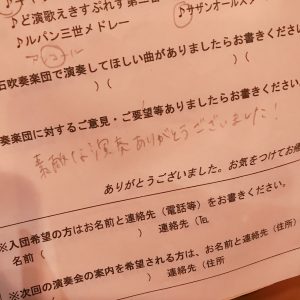 ♪サザンオールス
♪ど演歌えきすぷれす第二
♪ルパン三世メドレー
石吹奏楽団で演奏してほしい曲がありましたらお書きくださ
)(
奏楽団に対するご意見・ご要望等ありましたらお書きください。
素敵な演奏ありがとうございました!
ありがとうございました。お気をつけてお帰
※入団希望の方はお名前と連絡先(電話等)をお書きください。
名前( ) 連絡先(℡
※次回の演奏会の案内を希望される方は、お名前と連絡先(住所
) 連絡先(住所